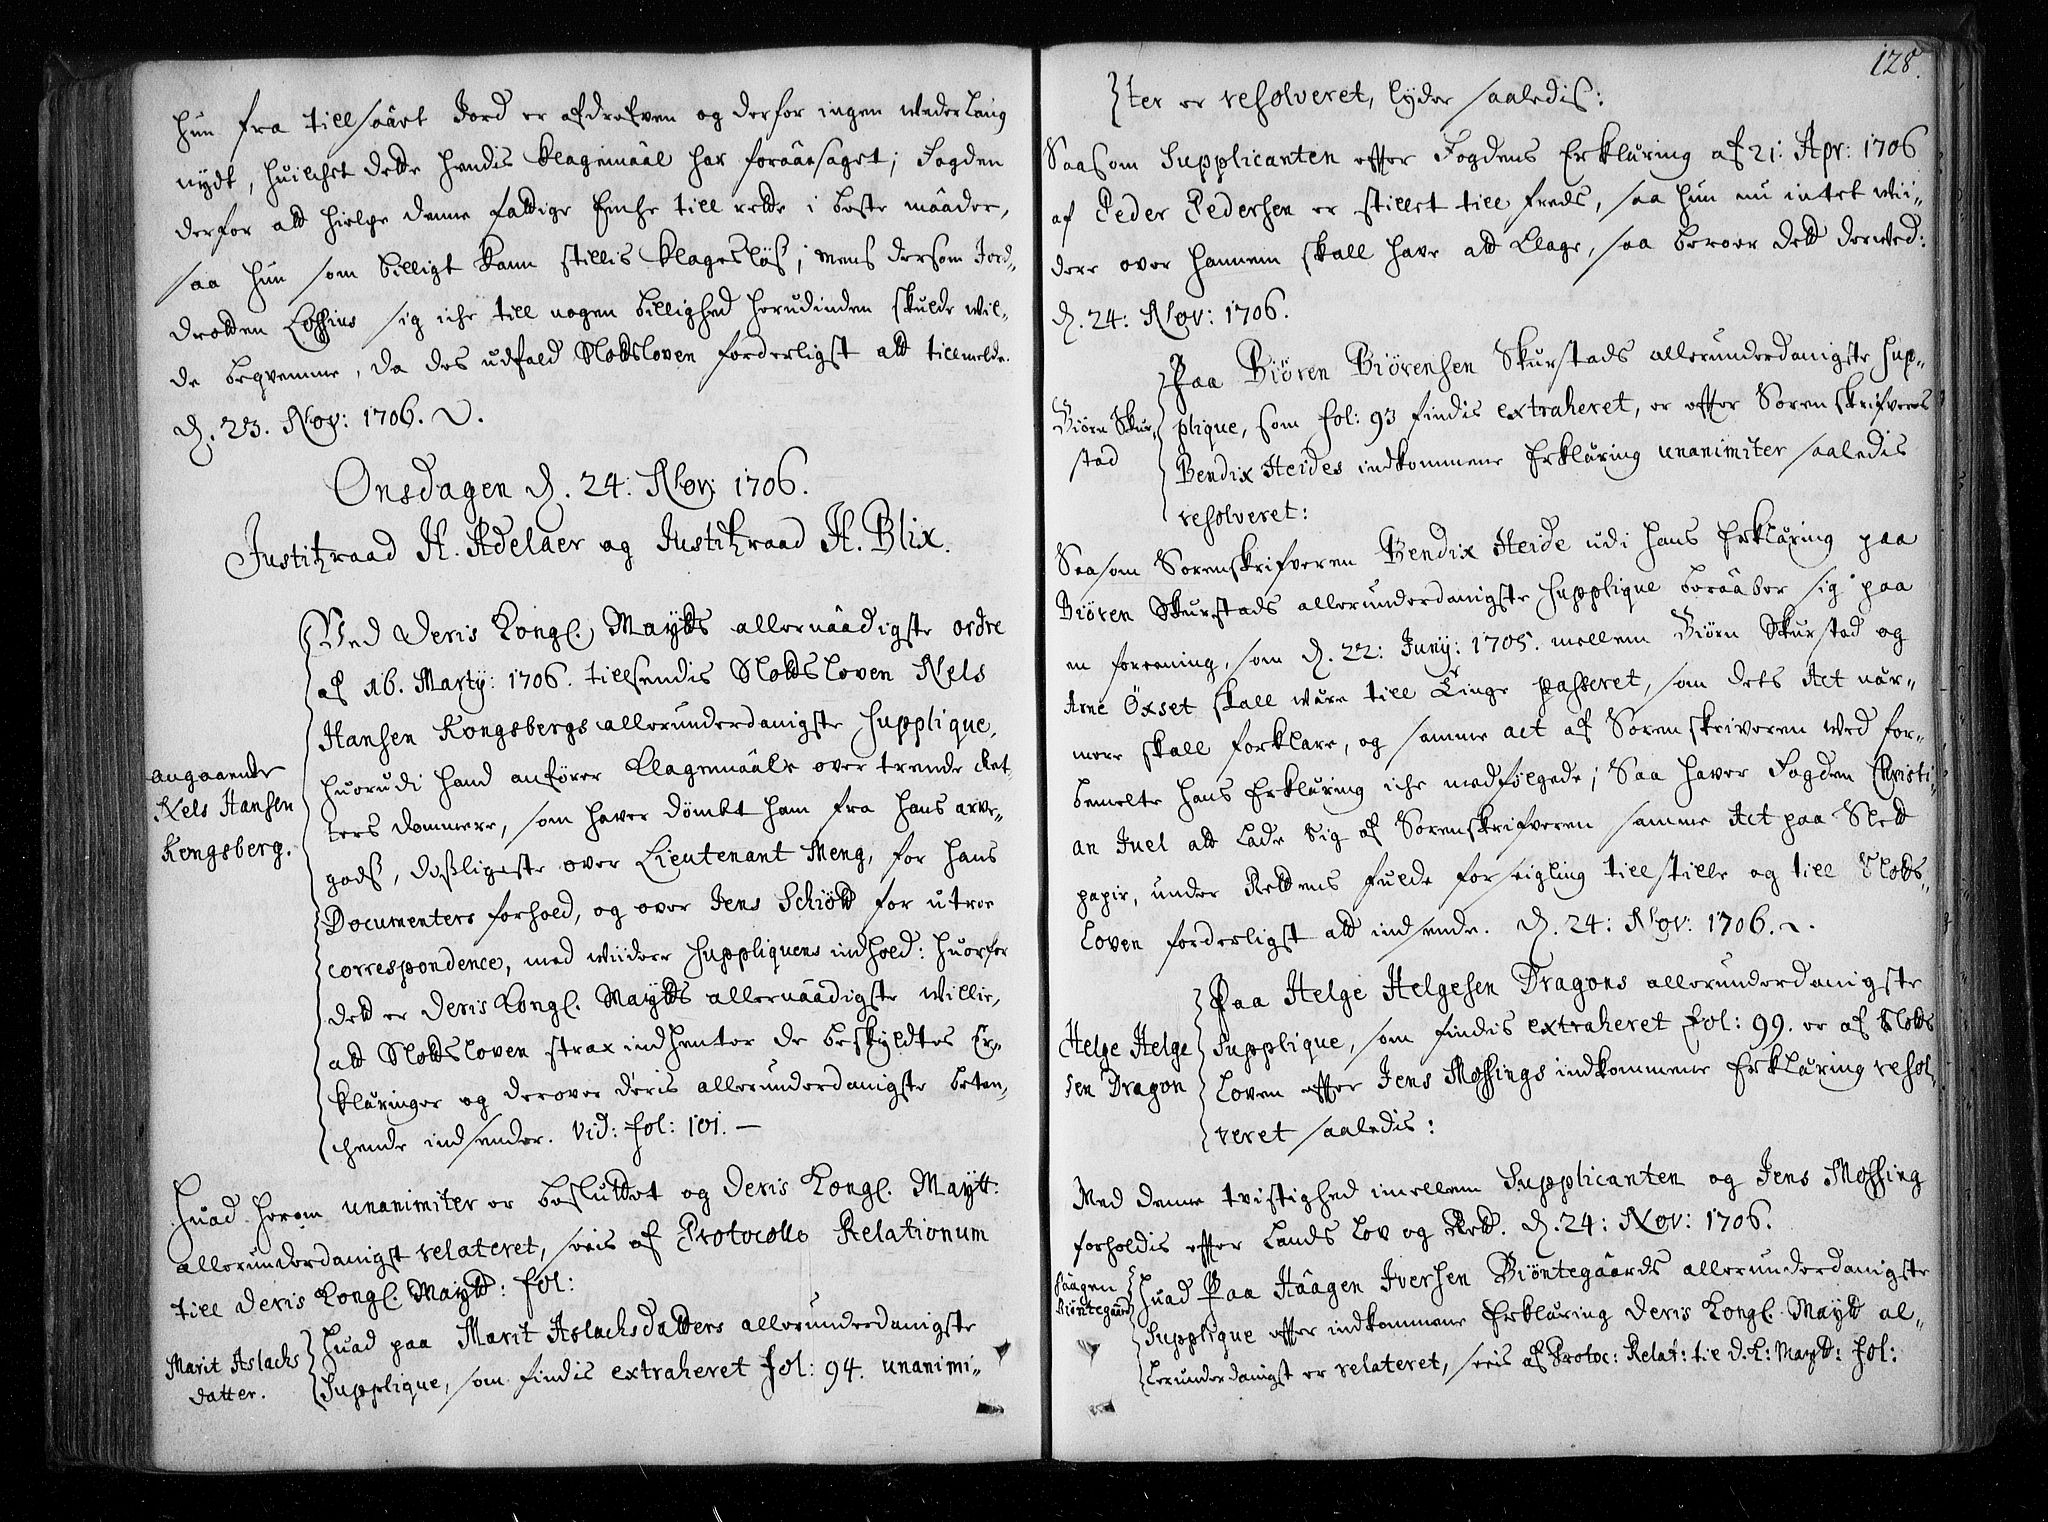 hun fra tillsaaet Jord er afdrefven og derfor ingen Wederlaug
nydt, huilchet dette hendis Klagemaal har foraarsaget; Fogden
derfor att hielpe denne fattige Enche till rette i beste maader,
saa hun som billigt kann stillis klagesløs; mens dersom Jord-
drotten sig iche till nogen billighed herudinden skulde wil-
de beqvemme, da des udfald Slotsloven forderligst att tillmelde.
D. 23. Nov: 1706.
Onsdagen D. 24: Nov: 1706.
Justitzraad H. Adelaer og Justitzraad H. Blix.
Ved Deris Kongl. Maytts allernaadigste ordre
af 16. Marty: 1706. tillsendis Slottsloven Nels
Hansen Kongsbergs allerunderdanigste Supplique,
huorudi hand anfører Klagemaale over trende Ret-
angaaende
Nels Hansen
Kongsberg.
ters dommere, som haver dømbt ham fra hans arve-
gods, desligeste over Lieutenant Meng, for hans
Documenters forhold, og over Jens Schiøtt for utroe
correspondence, med widere Suppliquens indhold: huorfor
dett er Deris Kongl. Maytts allernaadigste Willie,
att Slottsloven strax indhenter de beskyldtes Er-
kläringer og derover deris allerunderdanigste beten-
chende indsender. Vid: fol: 101. —
Huad herom unanimiter er besluttet og Deris Kongl. Maytt:
allerunderdanigst relateret, seeis af Protocollo Relationum
till Deris Kongl. Maytt: fol:
Marit Aslachs
datter.
Huad paa Marit Aslachsdatters allerunderdanigste
Supplique, som findis extraheret fol: 94. unanimi-
128.
ter er resolveret, lyder saaledis:
Saasom Supplicanten effter Fogdens Erkläring af 21: Apr: 1706
af Peder Pedersen er stillet till freds, saa hun nu intet wii-
dere over hannem skall have att klage, saa beroer dett derwed:
D. 24: Nov: 1706.
Biørn Skur-
stad
Paa Biøren Biørensen Skurstads allerunderdanigste Sup-
plique, som fol: 93 findis extraheret, er effter Sorenskrifverens
Bendix Heides indkommene Erkläring unanimiter saaledis
resolveret:
Saasom Sorenskrifveren Bendix Heide udi hans Erkläring paa
Biören Skurstads allerunderdanigste Supplique beraaber sig paa
en foreening, som D. 22: Juny: 1705. mellem Biørn Skurstad og
Arne Öxset skall wäre till Tinge passeret, som dets Act när-
mere skall forklare, og samme act af Sorenskriveren wed for-
bemelte hans Erkläring iche medfølgede; Saa haver Fogden Christi-
an Juel att lade sig af Sorenskrifveren samme Act paa Slett
papir, under Rettens fulde forseigling tillstille og till Slotts-
loven forderligst att indsende. D. 24: Nov: 1706.
Helge Helge
sen Dragon
Paa Helge Helgesen Dragons allerunderdanigste
Supplique, som findis extraheret fol: 99. er af Slotts
loven effter Jens Mossings indkommene Erkläring resol-
veret saaledis:
Med denne tvistighed imellem Supplicanten og Jens Mossing
forholdis effter Lands Lov og Rett. D. 24: Nov: 1706.
Haagen
Biöntegaard
Huad Paa Haagen Iversen Biöntegaards allerunderdanigste
Supplique effter indkommene Erkläring Deris Kongl. Maytt al-
lerunderdanigst er relateret, seeis af Protoc: Relat: till D. K: Maytt: fol: